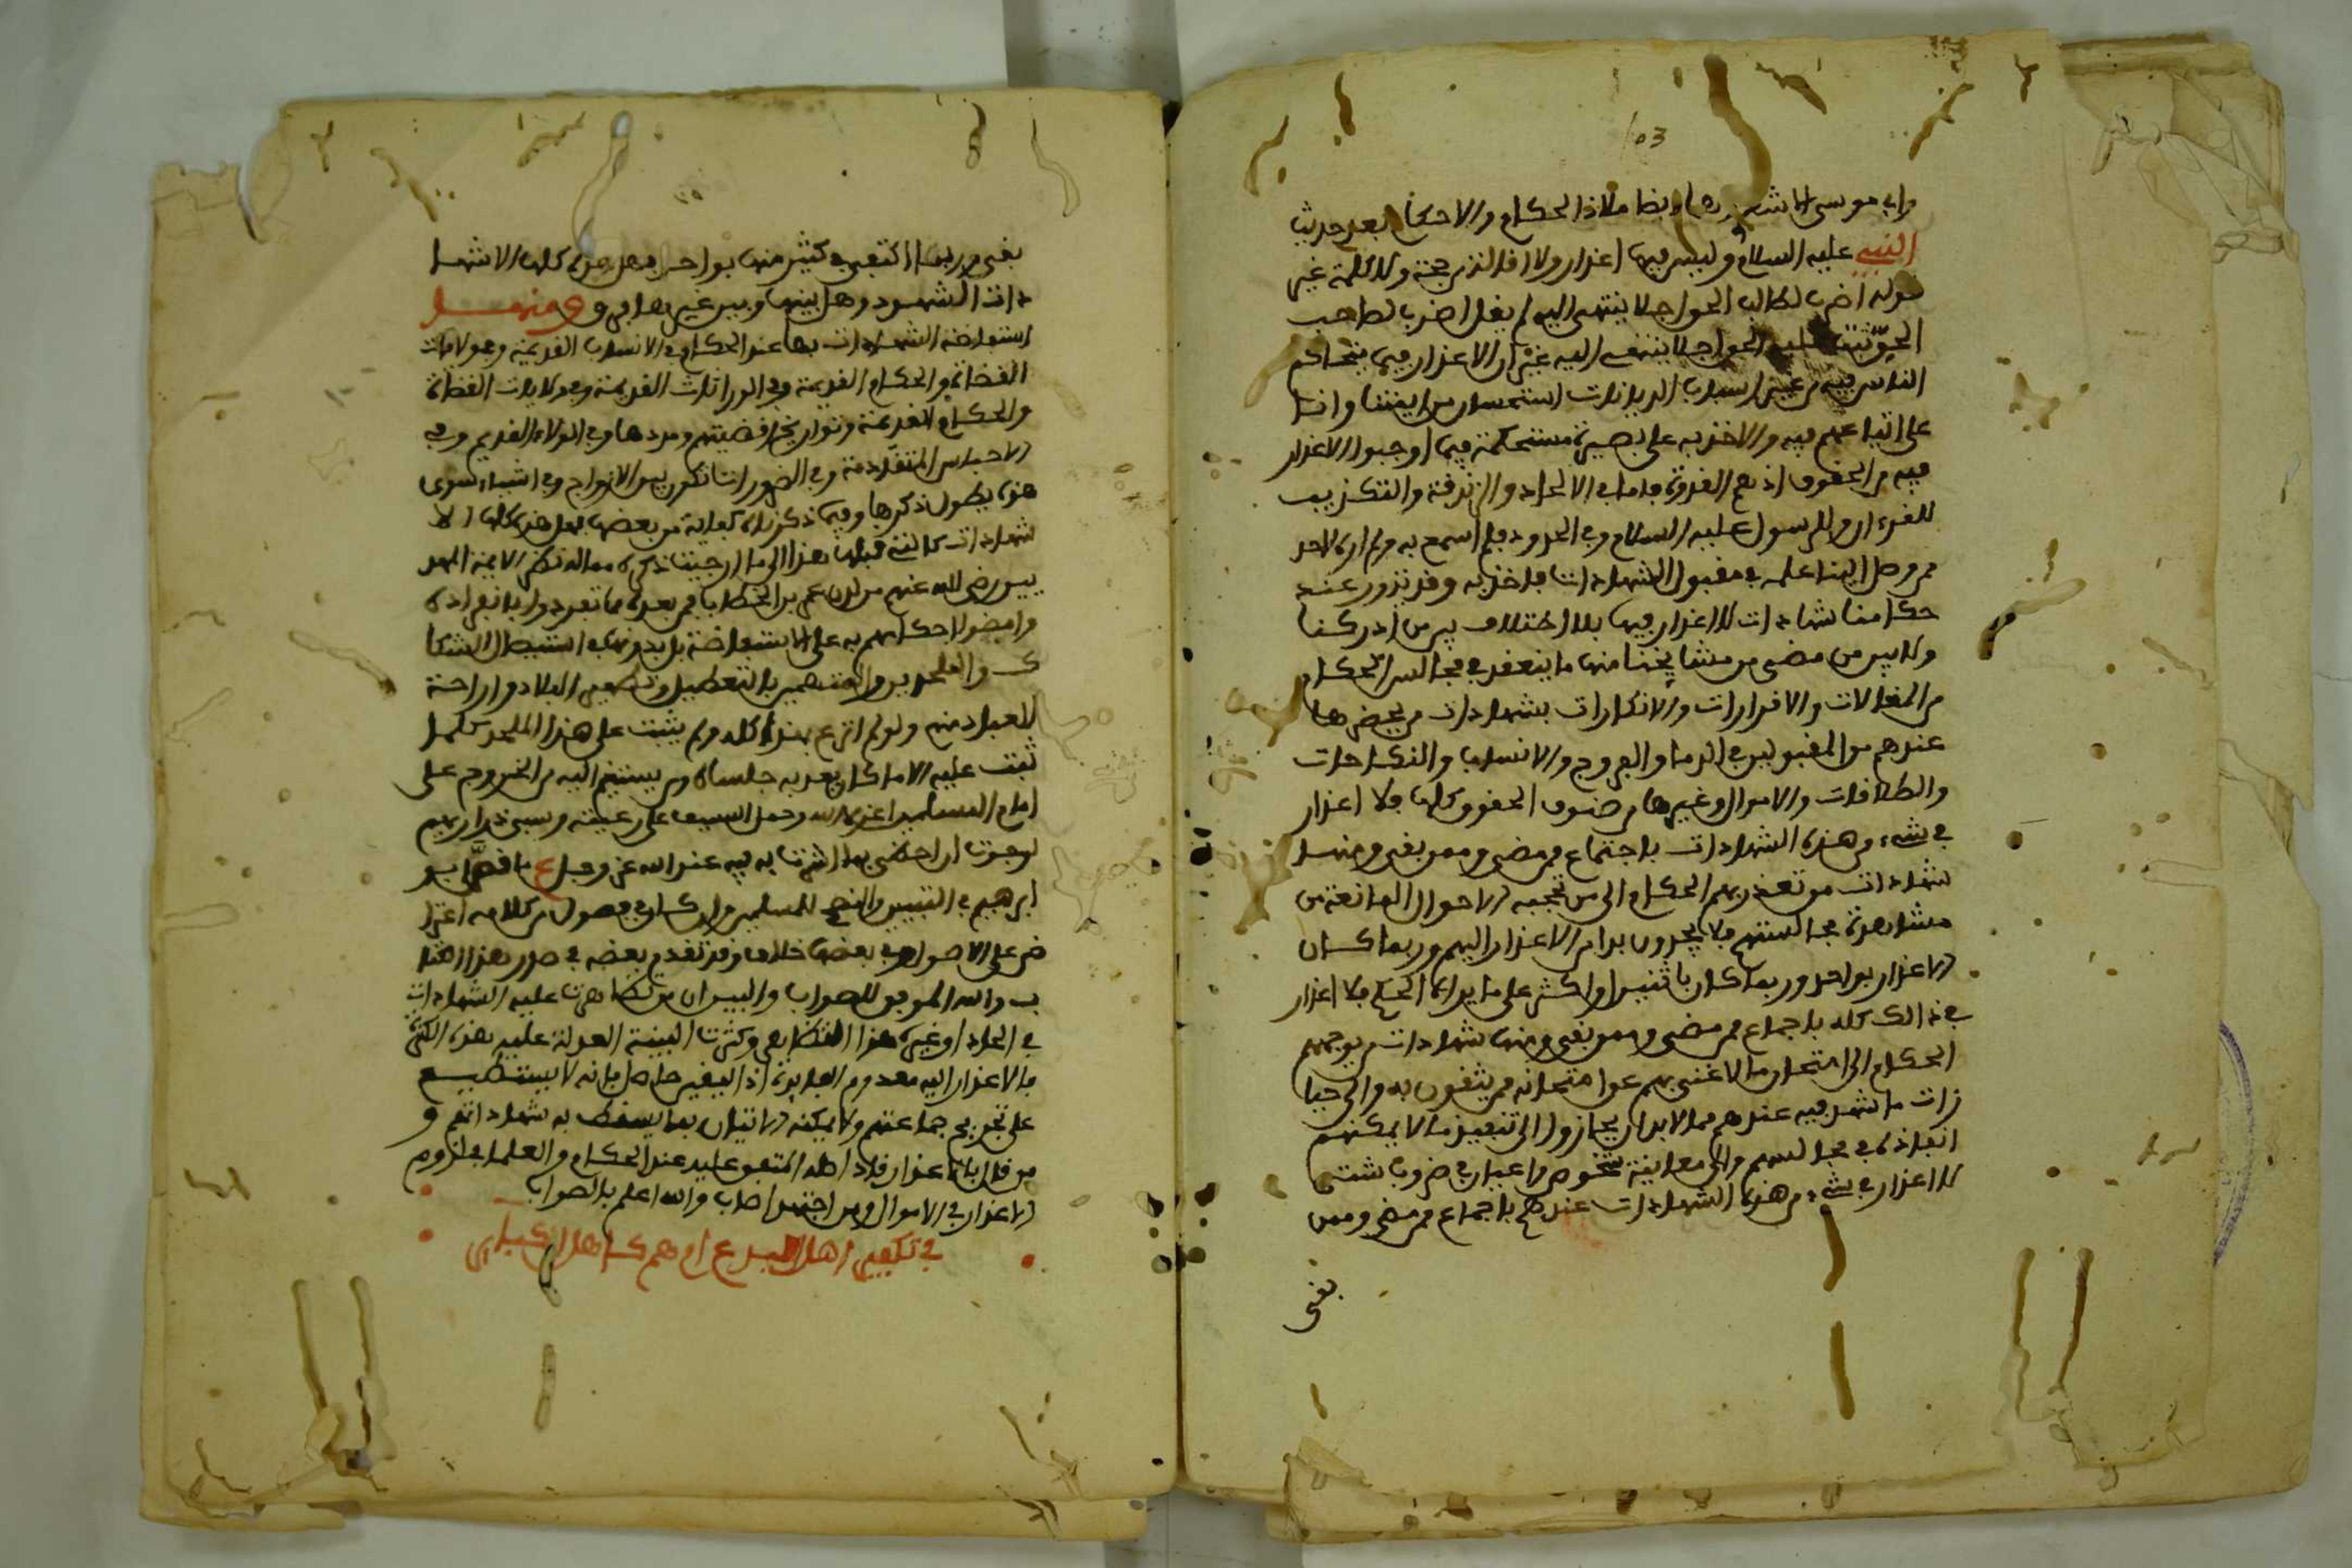 103
وابي موسى الاشعري وهما ايضا ملاذ الحكام والاحكام بعد حديث
النبي عليه السلام وليس فيها اعذار ولا اقالة من حجة ولا كلمة غير
قوله اضرب لطالب الحق اجلا ينتهي اليه لم يقل اضرب لصاحب
الحق اجلا ينتهي اليه غير ان الاعذار فيما يتحاكم
الناس فيه من غير اسباب الديانات استحسان من ايمتنا وانا
على اتباعهم فيه والاخذ به على بصيرة مستحكمة فيما اوجبوا الاعذار
فيه من الحقوق اذ هم القدوة فاما في الالحاد والزندقة والتكذيب
للقرءان وللرسول عليه السلام وفي الحدود فلم اسمع به ولم اره لاحد
ممن وصل الينا علمه في مقبول الشهادات فاخذ به وقد تدور عند
حكامنا شهادات لا اعذار فيها بلا اختلاف بين من ادركنا
ولا بين من مضى من مشايخنا منها ما ينعقد في مجالس الحكام
من المقالات والاقرارات والانكارات بشهادات من يحضرها
عندهم من المقبولين في الدما والفروج والانساب والنكاحات
والطلاقات والاموال وغيرها من صنوف الحقوق كلها فلا اعذار
في شيء من هذه الشهادات باجتماع ممن مضى وممن بقي ومنها
شهادات من تعذر بهم الحكام الى من تحجبه الاحوال المانعة من
مشاهدة مجالستهم فلا يجدون بدا من الاعذار اليهم وربما كان
الاعذار بواحد وربما كان باثنين او اكثر على ما يراه الحكم فلا اعذار
في ذالك كله باجماع ممن مضى وممن بقي ومنها شهادات من يوجههم
الحكام الى امتحان ما لا غنى بهم عن امتحانه ممن يثقون به والى حيا
زات ما شهد فيه عندهم مما لا بد ان يحازوا الى تنفيذ ما لا يمكنهم
انفاذه في مجالسهم والى معاينة شخوص الاعيان في ضروب شتى
لا اعذار في شيء من هذه الشهادات عندهم باجماع ممن مضى وممن
بقي
بقي وربما اكتفي في كثير منها بواحد فهل هذه كلها الا شها
دات الشهود وهل بينها وبين غيرها فرق ومنها
استفاضة الشهادات بها عند الحكام في الانساب القديمة وفي ولايات
القضاة والحكام القديمة وفي الوراثات القديمة وفي ولايات القضاة
والحكام القديمة وتواريخ اقضيتهم ومددها وفي الولاء القديم وفي
الاحباس المتقادمة وفي الضرورات تكون بين الازواج وفي اشياء سوى
هذه يطول ذكرها وفيما ذكرناه كفاية من بعضها فهل هذه كلها الا
شهادات كافية قبلها هذا الى ما ارجيت ذكره مما له نظر الايمة المهد
يين رضي الله عنهم من لدن عمر بن الخطاب فمن بعده مما تفردوا بانفراده
وامضوا احكامهم به على الاستفاضة بل بدونها في استيصال الشكا
ك والملحدين والمتهمين بالتعطيل وتطهير البلاد واراحة
العباد منهم ولو لم انزع بهذا كله ولم يثبت على هذا الملحد كلما
ثبت عليه الا ما كان يعد به جلساه من يستنيم اليه من الخروج على
امام المسلمين اعزه الله وحمل السيف على رعيته وسبي ذراريهم
لرجوت ان احظى بما اشرت به فيه عند الله عز وجل ع ما قصه ابو
ابرهيم في التبيين والنصح للمسلمين وان كان في فصول من كلامه اعترا
ض على الاصول وفي بعضها خلاف وقد تقدم بعضه في صدر هذا الكتا
ب والله الموفق للصواب والبيان من تظاهرت عليه الشهادات
في الحاد او غيره هذا التظاهر وكثرت البينة العدلة عليه هذه الكثرة
فالاعذار اليه معدوم الفايدة اذ اليقين حاصل بانه لا يستطيع
على تجريح جماعتهم ولا يمكنه الاتيان بما يسقط به شهاداتهم و
من قال بالاعذار فلاد اصله المتفق عليه عند الحكام والعلما في لزوم
الاعذار في الاموال ومن اجتهد اصاب والله اعلم بالصواب
في تكفير اهل البدع ام هم كاهل الكباير